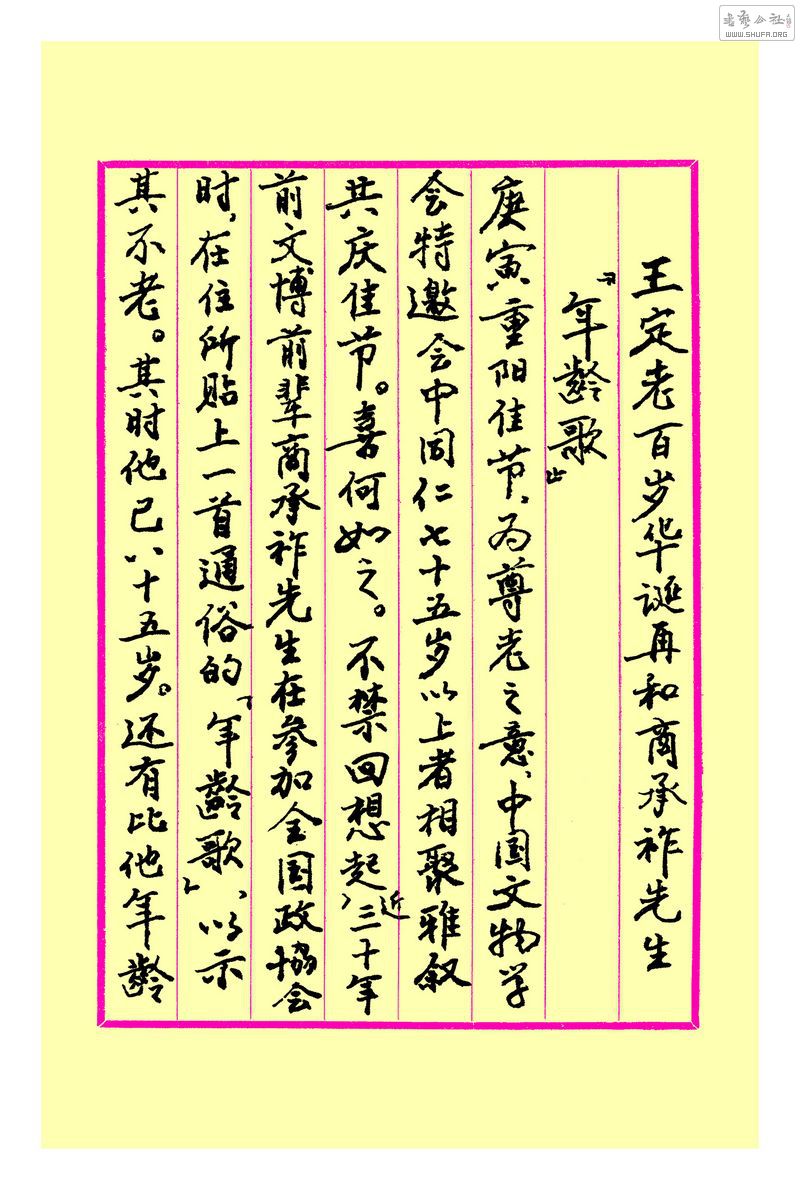 王定老百岁华诞再和商承祚先生
《年龄歌》
庚寅重阳佳节、为尊老之意、中国文物学
会特邀会中同仁七十五岁以上者相聚雅叙
共庆佳节。喜何如之。不禁回想起近三十年
前文博前辈商承祚先生在参加全国政协会
时，在住所贴上一首通俗的《年龄歌》、以示
其不老。其时他已八十五岁。还有比他年龄
书艺公社
WWW.SHUFA.ORG